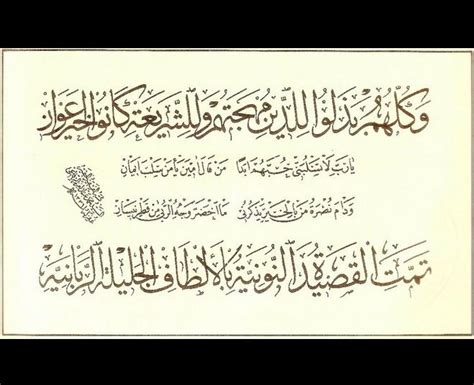 وَكُلُّهُمْ بَذَلُوا لِلدِّينِ مُهْجَتَهُمْ وَلِلشَّرِيعَةِ كَانُوا خَيْرَ أَعْوَانِ
يَا رَبِّ لَا تَسْلُبَنِّي حُبَّهُمْ أَبَدًا مَنْ قَالَ آمِينَ يَأْمَنْ سَلْبَ إِيمَانِ
وَدَامَ نُضْرَةُ مَنْ بِالْخَيْرِ يَذْكُرُنِي مَا اخْضَرَّ وَجْهُ الرُّبَى مِنْ قَطْرِ نِيسَانِ
تَمَّتِ الْقَصِيدَةُ النُّونِيَّةُ بِالْأَلْطَافِ الْجَلِيلَةِ الرَّبَّانِيَّةِ